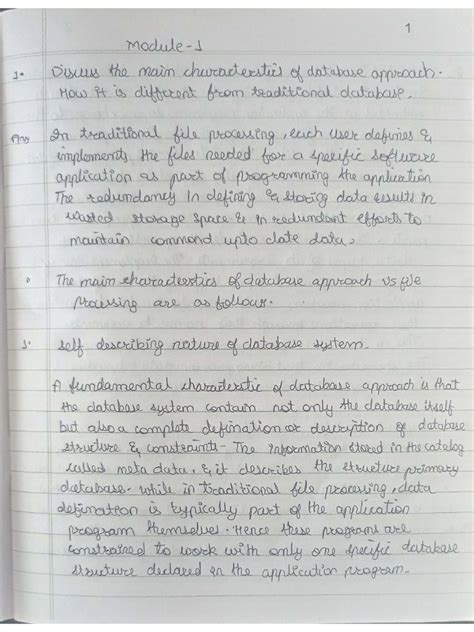 1
Module-1
1. Discuss the main characteristics of database approach.
How it is different from traditional database.
Ans In traditional file processing, each user defines &
implements the files needed for a specific software
application as part of programming the application
The redundancy In defining & storing data results in
wasted storage space & in redundant efforts to
maintain commond upto date data,
The main characteristics of database approach vs file
processing are as follows.
1. self describing nature of database system.
A fundamental characteristic of database approach is that
the database system contain not only the database itself
but also a complete defination or description of database
structure & constraints- The information stored in the catalog
called meta data, & it describes the structure primary
database. while in traditional file processing, data
defination is typically part of the application
program themselves. Hence these programs are
constrained to work with only one specific database
structure declared in the application program.